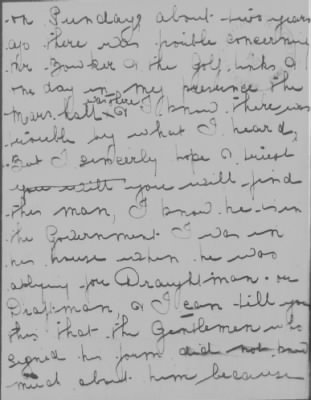 on Sundays about two years
ago there was trouble concerning
Mr. Bowker & the Golf links &
one day in my presence the
was there
Mars-hall & I know there was
trouble by what I heard,
But I sincerely hope & trust
you will you will find
this man, I know he is in
the Government I was in
his house when he was
applying for Draughtman or
Draftman, & I can tell you
this that the Gentlemen who
signed his form did not know
much about him because